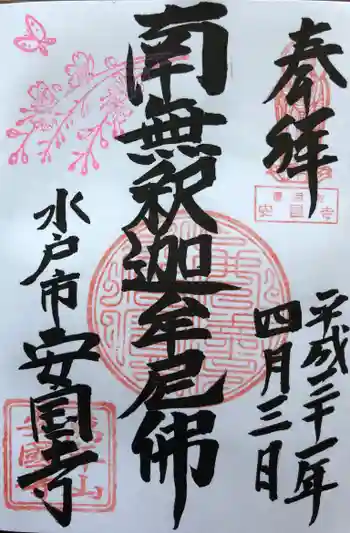 奉拝
平成三十一年
四月三日
南無釈迦牟尼佛
水戸市
安国寺